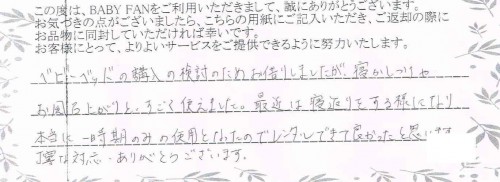 この度は、BABY FANをご利用いただきまして、誠にありがとうございます。
お気づきの点がございましたら、こちらの用紙にご記入いただき、ご返却の際に
お品物に同封していただければ幸いです。
お客様にとって、よりよいサービスをご提供できるように努力いたします。
ベビーベッドの購入の検討のためお借りしましたが、寝かしつけや
お風呂上がりと、すごく使えました。最近は寝返りをする様になり
本当に一時期のみの使用となったのでレンタルできて良かったと思います
丁寧な対応、ありがとうございます。